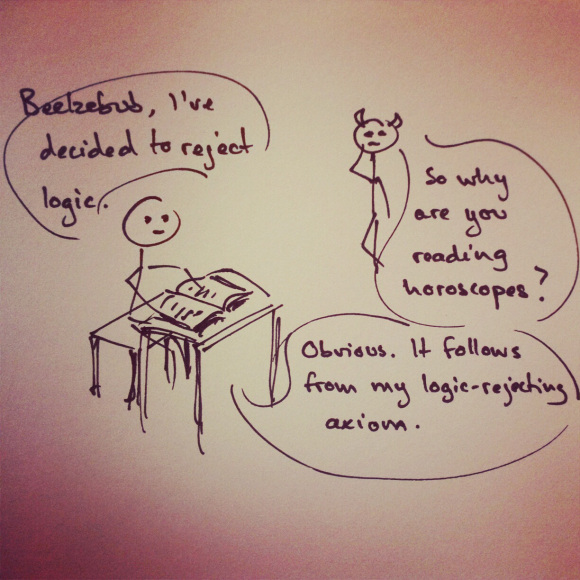 Beelzebub, I've
decided to reject
logic.
So why
are you
reading
horoscopes?
Obvious. It follows
from my logic-rejecting
axiom.